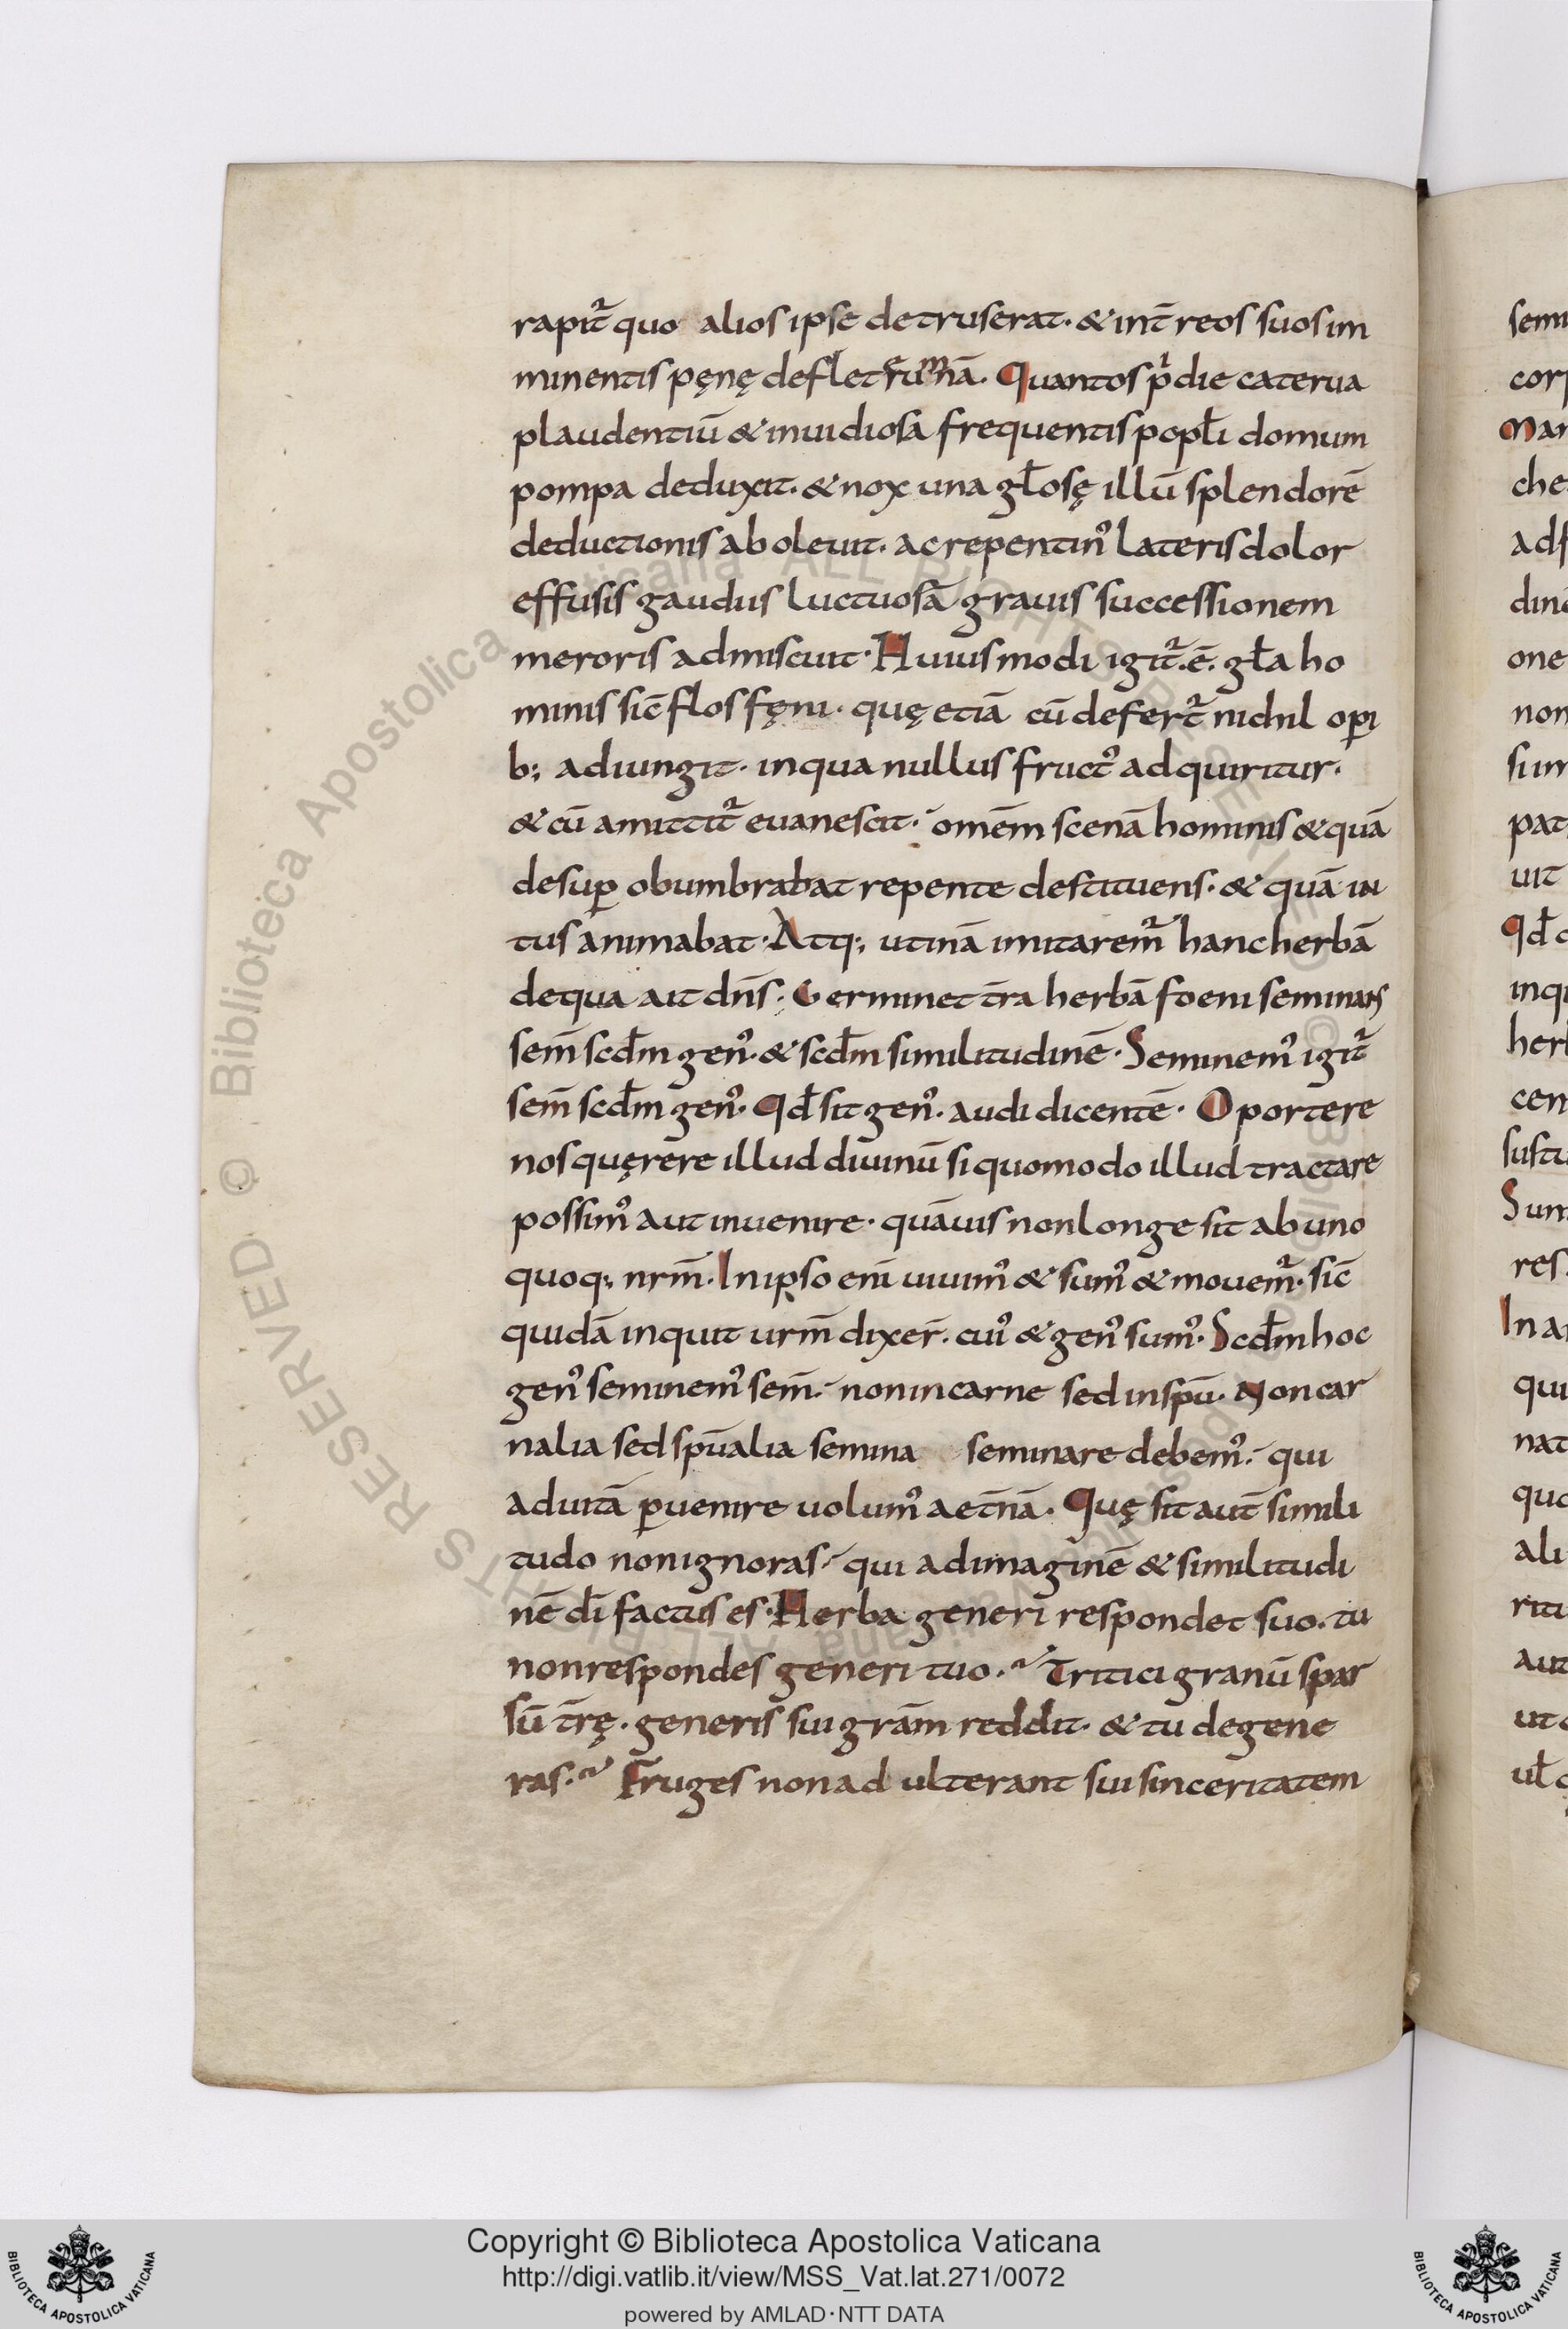 rapit᷑ quo alios ipse detruserat· & int̄ reos suos im
minentis pęnę deflet ęrumnā. Quantos p̍die caterua
plaudentiū & inuidiosa frequentis popłi domum
pompa deduxit· & nox una głosę illū splendorē
deductionis aboleuit· ac repentin᾿ lateris dolor
effusis gaudiis luctuosā grauis successionem
meroris admiscuit· Huiusmodi igit᷑.ē. gła ho
minis sic̄ flos fęni· quę etiā cū defert᷑ nichil opi
b; adiungit· in qua nullus fruct᾿ adquiritur·
& cū amittit᷑ euanescit· omēm scenā hominis & quā
desuꝑ obumbrabat repente destituens· & quā in
tus animabat· Atq; utinā imitarem᷑ hanc herbā
de qua ait dn̄s· Germinet t̄ra herbā foeni seminans
sem̄ scd̄m gen᾿· & scd̄m similitudinē· Seminem᾿ igit᷑
sem̄ scd̄m gen᾿· Qd̄ sit gen᾿· audi dicentē· Oportere
nos quęrere illud diuinū si quomodo illud tractare
possim᾿ aut inuenire· quāuis non longe sit ab uno
quoq; nr̄m· In ipso eni̅ uiuim᾿ & sum᾿ & mouem᷑· sic̄
quidā inquit ur̄m dixer̄· cui᾿ & gen᾿ sum᾿· Scd̄m hoc
gen᾿ seminem᾿ sem̄· non in carne sed in spū· Non car
nalia sed spūalia semina seminare debem᾿· qui
ad uitā ꝑuenire uolum᾿ aet̄nā· Quę sit aut̄ simili
tudo non ignoras· qui ad imaginē & similitudi
nē dī factus es· Herba generi respondet suo· tu
non respondes generi tuo· Tritici granū spar
sū t̄rę· generis sui gr̄am reddit· & tu degene
ras· Fruges non adulterant sui sinceritatem
semi
corp
Man
che
adf
dine
one
non
sum
pat
uit
Qd̄
inqu
herb
cen
sustu
Sum
res
In a
qui
nat
quo
ali
ritu
aut
ut
uł
Copyright © Biblioteca Apostolica Vaticana
http://digi.vatlib.it/view/MSS_Vat.lat.271/0072
powered by AMLAD·NTT DATA
BIBLIOTECA APOSTOLICA VATICANA
BIBLIOTECA APOSTOLICA VATICANA